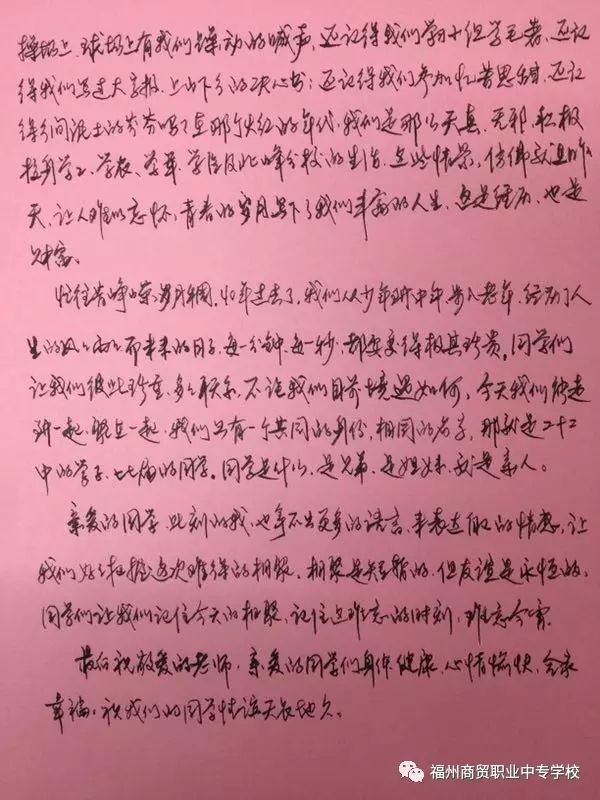 操场上、球场上有我们躁动的喊声，还记得我们学习小组学毛著，还记
得我们写过大字报、上山下乡的决心书；还记得我们参加忆苦思甜，还记
得乡间泥土的芬芳吗？在那个火红的年代，我们是那么天真、无邪、积极
投身学工、学农、学军、学医及北峰分校的生活，这些情景，仿佛就是昨
天，让人难以忘怀，青春的岁月写下了我们丰富的人生，这是经历，也是
财富。
忆往昔峥嵘岁月稠，40年过去了，我们从少年到中年步入老年，经历了人
生的风风雨雨，而未来的日子，每一分钟、每一秒，都要变得极其珍贵。同学们
让我们彼此珍重、多多联系，不论我们目前境遇如何，今天我们能走
到一起，聚在一起，我们只有一个共同的身份，相同的名字，那就是二十二
中的学子、七七届的同学。同学是什么，是兄弟、是姐妹、就是亲人。
亲爱的同学，此刻的我，也拿不出更多的语言，来表达自己的情感，让
我们好好把握这次难得的相聚，相聚是短暂的，但友谊是永恒的，
同学们让我们记住今天的相聚，记住这难忘的时刻，难忘今宵。
最后祝敬爱的老师，亲爱的同学们身体健康，心情愉快，全家
幸福。祝我们的同学情谊天长地久。
福州商贸职业中专学校